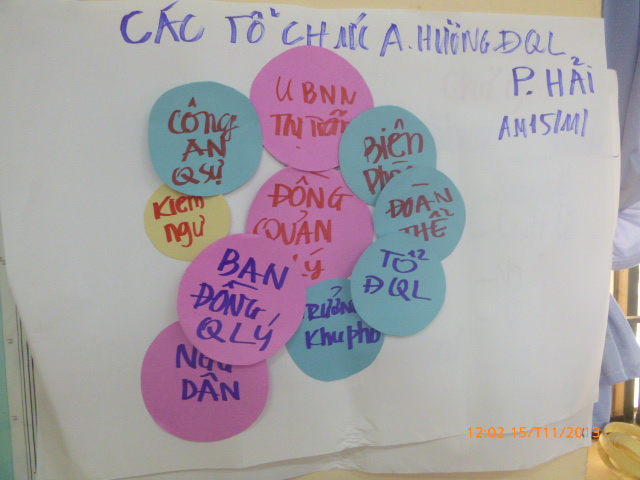 CÁC TỔ CHỨC A. HƯỞNG ĐQL
P. HẢI
AM 15/11/
U BNN
THỊ TRẤN
CÔNG
AN
QSỰ
BIÊN
KIỂM
NGƯ
ĐỒNG
QUẢN
LÝ
ĐOÀN
THỂ
TỔ
ĐQL
BAN
ĐỒNG
QLÝ
TRƯỞNG
Khu phố
NGƯ
DÂN
12:02 15/T11/2013